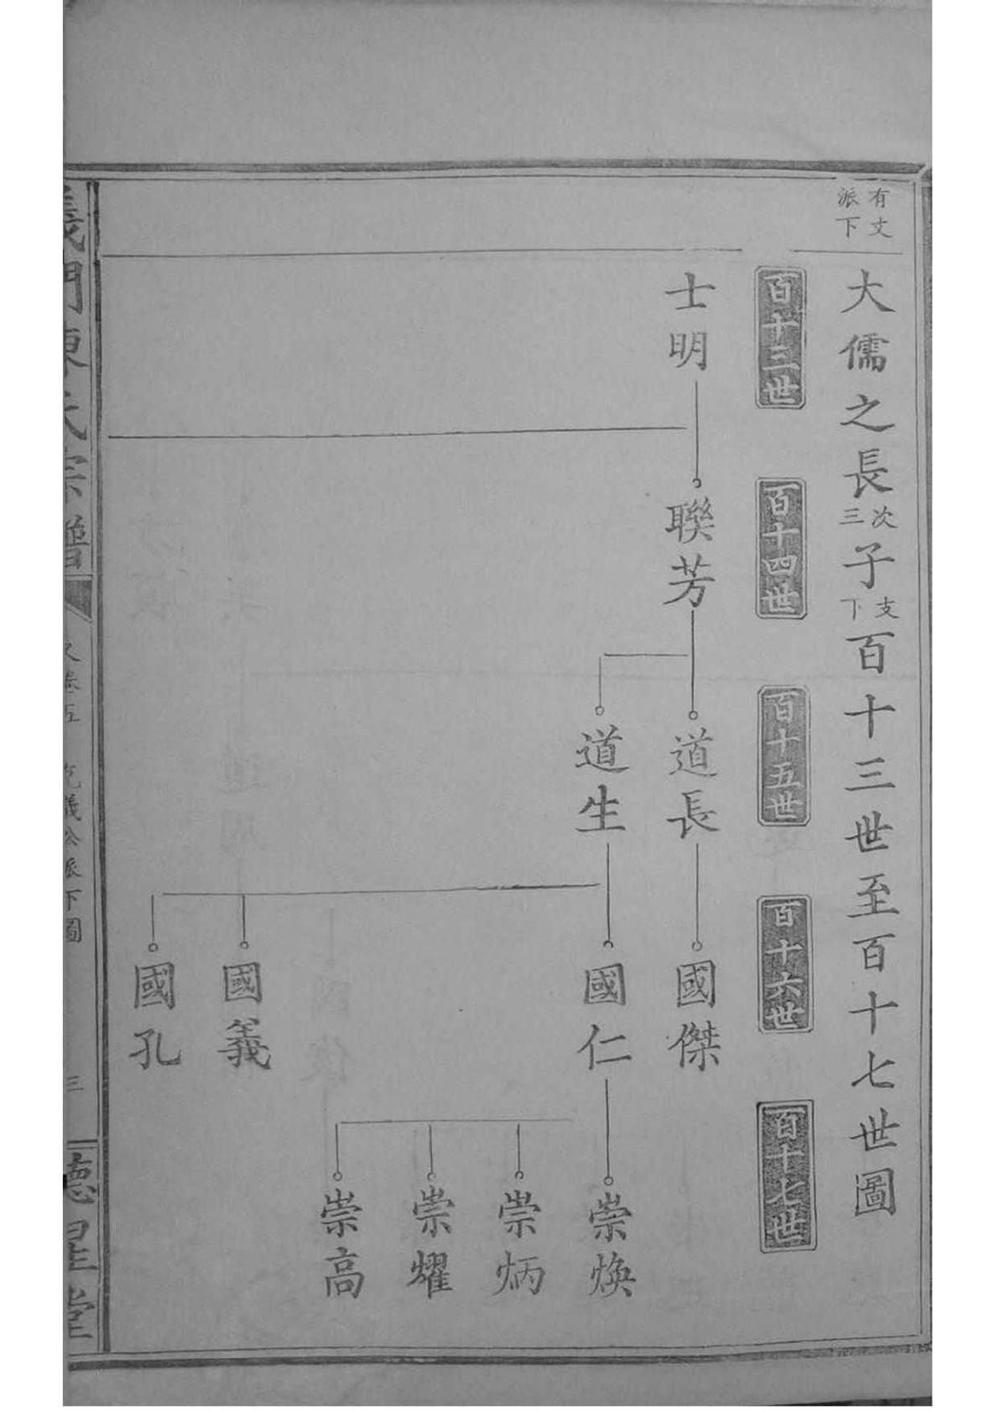 有文
派下
大儒之長次三子支下百十三世至百十七世圖
百十三世
百十四世
百十五世
百十六世
百十七世
士明
聯芳
道長
道生
國傑
國仁
國義
國孔
崇煥
崇炳
崇耀
崇高
義門陳氏宗譜
卷五
克義公派下圖
三
德星堂